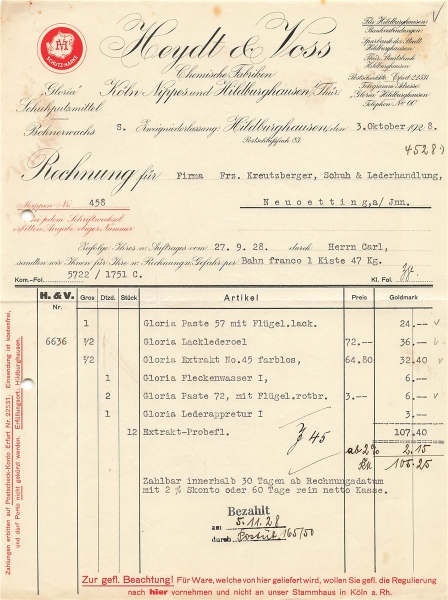 HV
SCHUTZ-MARKE
Heydt & Voss
Chemische Fabriken
Köln-Nippes und Hildburghausen, Thür.
"Gloria"
Schuhputzmittel
Bohnerwachs
Für Hildburghausen:
Bankverbindungen:
Sparbank der Stadt
Hildburghausen
Thür. Staatsbank
Hildburghausen
Postscheckkto Erfurt 22531
Telegramm-Adresse:
"Gloria" Hildburghausen
Telephon No 60
S. Zweigniederlassung: Hildburghausen, den 3. Oktober 1928.
Postschließfach 83.
4528
Rechnung für Firma Frz. Kreutzberger, Schuh & Lederhandlung,
Neuoetting, a/ Jnn.
Mappen Nr. 458
In jedem Schriftwechsel
erbitten Angabe obiger Nummer
Zufolge Ihres w. Auftrages vom 27. 9. 28. durch Herrn Carl,
sandten wir Ihnen für Ihre w. Rechnung u. Gefahr per Bahn franco 1 Kiste 47 Kg.
Kom.-Fol. 5722 / 1751 C. Kl. Fol.
H. & V. Nr. Gros Dtzd. Stück Artikel Preis Goldmark
1 Gloria Paste 57 mit Flügel.lack. 24.—
6636 1/2 Gloria Lacklederoel 72.— 36.—
1/2 Gloria Extrakt No.45 farblos, 64.80 32.40
1 Gloria Fleckenwasser I, 6.—
2 Gloria Paste 72, mit Flügel.rotbr. 3.— 6.—
1 Gloria Lederappretur I 3.—
12 Extrakt-Probefl. 107.40
45
ab 2% 2.15
105.25
Zahlbar innerhalb 30 Tagen ab Rechnungsdatum
mit 2 % Skonto oder 60 Tage rein netto Kasse.
Bezahlt
am 5.11.28
durch Postüt 165/50
Zahlungen erbitten auf Postscheck-Konto Erfurt Nr. 22531. Einsendung ist kostenfrei,
und darf Porto nicht gekürzt werden. Erfüllungsort: Hildburghausen.
Zur gefl. Beachtung! Für Ware, welche von hier geliefert wird, wollen Sie gefl. die Regulierung
nach hier vornehmen und nicht an unser Stammhaus in Köln a. Rh.